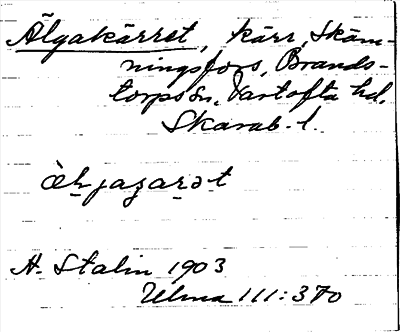 Älgakärret, kärr, Skäm-
ningsfors, Brands-
torps sn, Vartofta hd,
Skarab. l.
H. Stalin 1903
Ulma 111:370